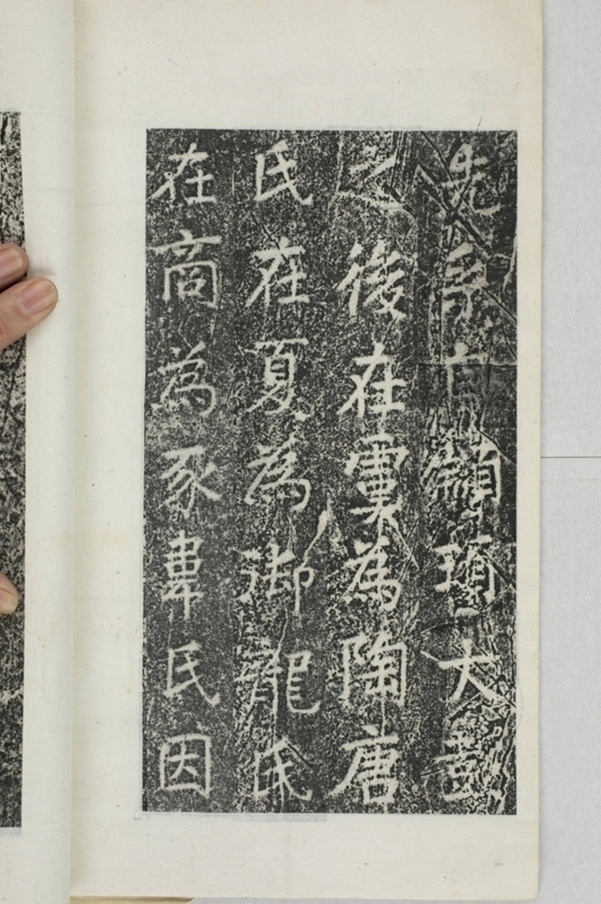 先系自顓頊大彭
之後在虞為陶唐
氏在夏為御龍氏
在商為豕韋氏因